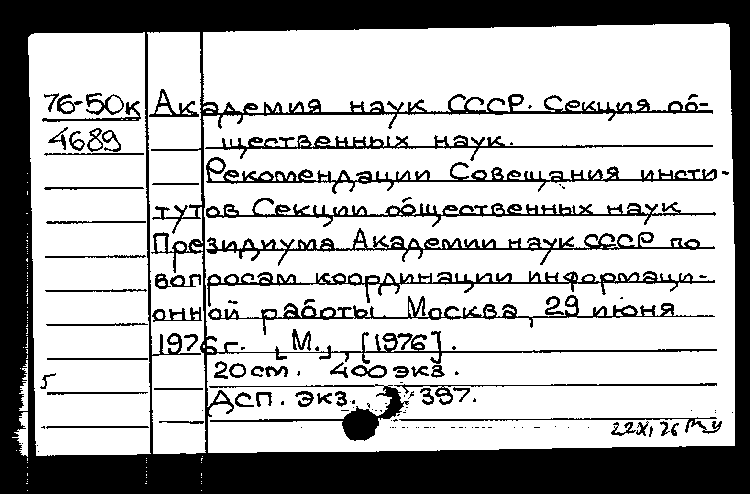 76-50к Академия наук СССР. Секция об-
4689 щественных наук.
Рекомендации Совещания инсти-
тутов Секции общественных наук
Президиума Академии наук СССР по
вопросам координации информаци-
онной работы. Москва, 29 июня
1976 г. [М.], [1976].
20 см. 400 экз.
5
ДСП. экз. 397.
22XI 76